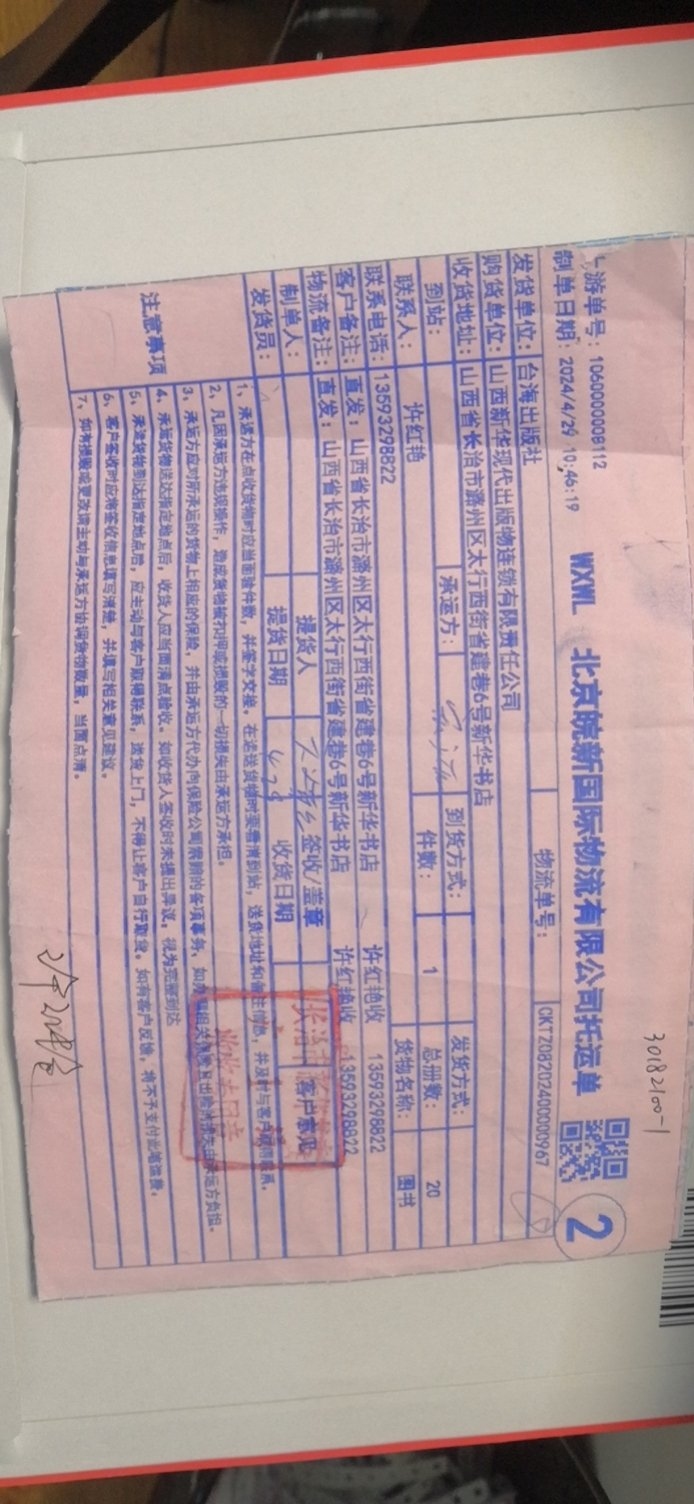 30182100-1
WXWL 北京皖新国际物流有限公司托运单 2
上游单号：1060000008112
制单日期：2024/4/29 10:46:19 物流单号：CKTZ0820240000967
发货单位：台海出版社
购货单位：山西新华现代出版物连锁有限责任公司
收货地址：山西省长治市潞州区太行西街省建巷6号新华书店
到站： 承运方： 到货方式： 发货方式：
联系人：许红艳 件数：1 总册数：20
联系电话：13593298822 货物名称：图书
客户备注：直发：山西省长治市潞州区太行西街省建巷6号新华书店 许红艳收 13593298822
物流备注：直发：山西省长治市潞州区太行西街省建巷6号新华书店 许红艳收 13593298822
制单人： 提货人 签收/盖章 客户意见
发货员： 提货日期 收货日期
注意事项
1、承运方在点收货物时应当面验件数，并签字交接。在运送货物时要看清到站，送货地址和备注信息，并及时与客户取得联系。
2、凡因承运方违规操作，造成货物被扣押或损毁的一切损失由承运方承担。
3、承运方应对所承运的货物上相应的保险，并由承运方代办向保险公司索赔的各项事务，如
4、承运货物送达指定地点后，收货人应当面清点验收。如收货人签收时未提出异议，视为完整到达
5、承运货物到达指定地点后，应主动与客户取得联系，送货上门，不得让客户自行取货。如有客户反馈，将不予支付此笔运费。
6、客户签收时应将签收信息填写清楚，并填写相关意见建议。
7、如有损毁或更改请主动与承运方协调货物数量，当面点清。